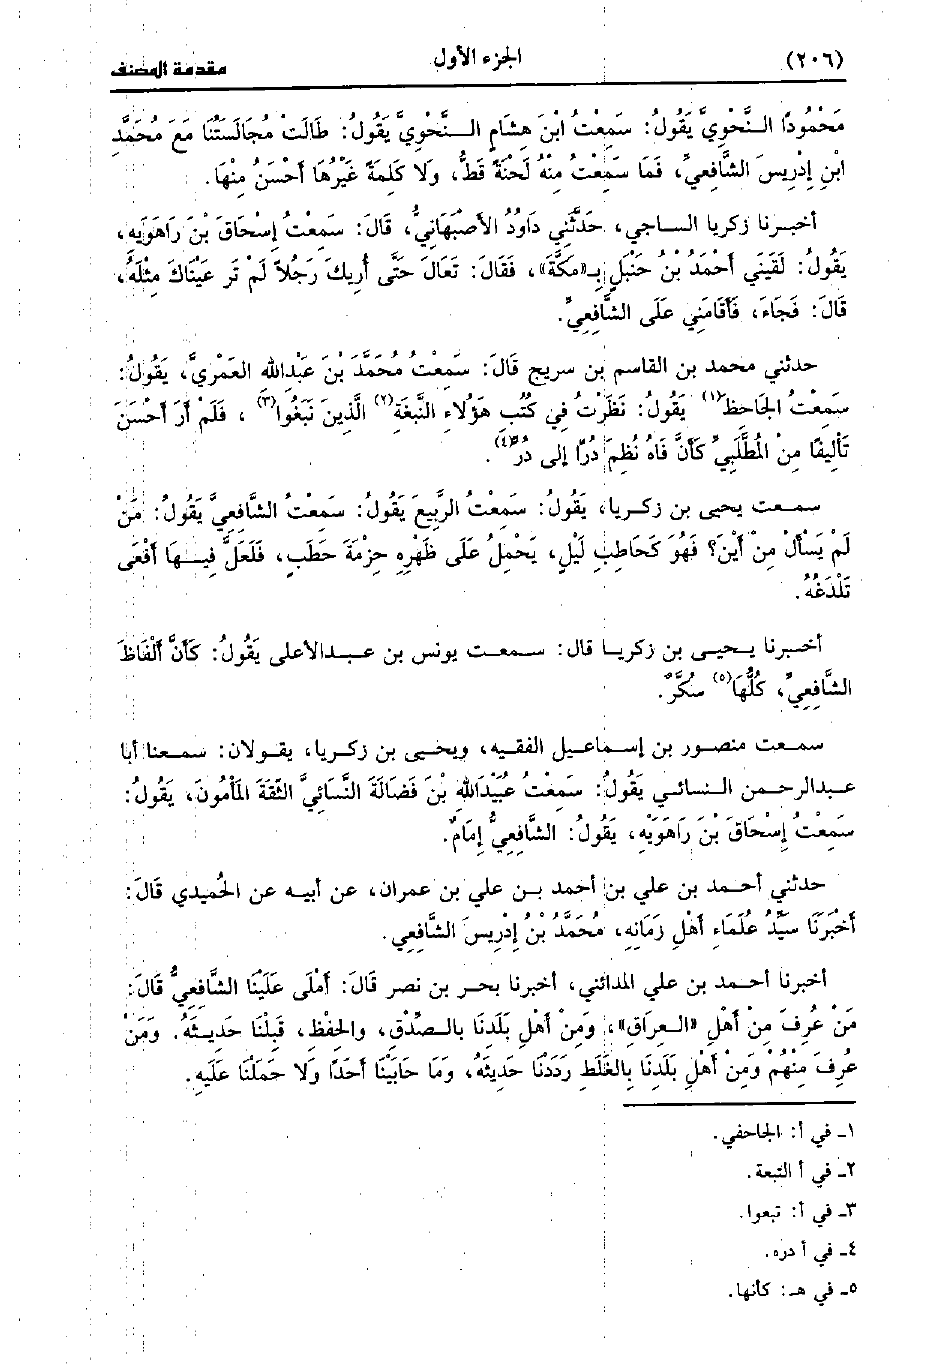 (٢٠٦) الجزء الأول مقدمة المصنف
مَحْمُودًا النَّحْوِيَّ يَقُولُ: سَمِعْتُ ابْنَ هِشَامٍ النَّحْوِيَّ يَقُولُ: طَالَتْ مُجَالَسَتُنَا مَعَ مُحَمَّدِ
ابْنِ إِدْرِيسَ الشَّافِعِيِّ، فَمَا سَمِعْتُ مِنْهُ لَحْنَةً قَطُّ، وَلَا كَلِمَةً غَيْرُهَا أَحْسَنُ مِنْهَا.
أخبرنا زكريا الساجي، حَدَّثَنِي دَاوُدُ الأَصْبَهَانِيُّ، قَالَ: سَمِعْتُ إِسْحَاقَ بْنَ رَاهَوَيْهِ،
يَقُولُ: لَقِيَنِي أَحْمَدُ بْنُ حَنْبَلٍ بِـ«مَكَّةَ»، فَقَالَ: تَعَالَ حَتَّى أُرِيكَ رَجُلاً لَمْ تَرَ عَيْنَاكَ مِثْلَهُ،
قَالَ: فَجَاءَ، فَأَقَامَنِي عَلَى الشَّافِعِيِّ.
حدثني محمد بن القاسم بن سريج قَالَ: سَمِعْتُ مُحَمَّدَ بْنَ عَبْدِاللهِ العَمْرِيَّ، يَقُولُ:
سَمِعْتُ الجَاحِظَ(١) يَقُولُ: نَظَرْتُ فِي كُتُبِ هَؤُلَاءِ النَّبَغَةِ(٢) الَّذِينَ نَبَغُوا(٣) ، فَلَمْ أَرَ أَحْسَنَ
تَأْلِيفًا مِنْ المُطَّلَبِيِّ كَأَنَّ فَاهُ نُظِمَ دُرًّا إِلى دُرٍّ(٤).
سمعت يحيى بن زكريا، يَقُولُ: سَمِعْتُ الرَّبِيعَ يَقُولُ: سَمِعْتُ الشَّافِعِيَّ يَقُولُ: مَنْ
لَمْ يَسْأَلْ مِنْ أَيْنَ؟ فَهُوَ كَحَاطِبِ لَيْلٍ، يَحْمِلُ عَلَى ظَهْرِهِ حِزْمَةَ حَطَبٍ، فَلَعَلَّ فِيهَا أَفْعَى
تَلْدَغُهُ.
أخبرنا يحيى بن زكريا قال: سمعت يونس بن عبدالأعلى يَقُولُ: كَأَنَّ أَلْفَاظَ
الشَّافِعِيِّ، كُلُّهَا(٥) سُكَّرٌ.
سمعت منصور بن إسماعيل الفقيه، ويحيى بن زكريا، يقولان: سمعنا أبا
عبدالرحمن النسائي يَقُولُ: سَمِعْتُ عُبَيْدَاللهِ بْنَ فَضَالَةَ النَّسَائِيَّ الثِّقَةَ المَأْمُونَ، يَقُولُ:
سَمِعْتُ إِسْحَاقَ بْنَ رَاهَوَيْهِ، يَقُولُ: الشَّافِعِيُّ إِمَامٌ.
حدثني أحمد بن علي بن أحمد بن علي بن عمران، عن أبيه عن الحُميدي قَالَ:
أَخْبَرَنَا سَيِّدُ عُلَمَاءِ أَهْلِ زَمَانِهِ، مُحَمَّدُ بْنُ إِدْرِيسَ الشَّافِعِي.
أخبرنا أحمد بن علي المدائني، أخبرنا بحر بن نصر قَالَ: أَمْلَى عَلَيْنَا الشَّافِعِيُّ قَالَ:
مَنْ عُرِفَ مِنْ أَهْلِ «العِرَاقِ»، وَمِنْ أَهْلِ بَلَدِنَا بِالصِّدْقِ، والحِفْظِ، قَبِلْنَا حَدِيثَهُ. وَمَنْ
عُرِفَ مِنْهُمْ وَمِنْ أَهْلِ بَلَدِنَا بِالغَلَطِ رَدَدْنَا حَدِيثَهُ، وَمَا حَابَيْنَا أَحَدًا وَلَا حَمَلْنَا عَلَيهِ.
١ـ في أ: الجاحفي.
٢ـ في أ التبعة.
٣ـ في أ: تبعوا.
٤ـ في أ دره.
٥ـ في هـ: كأنها.